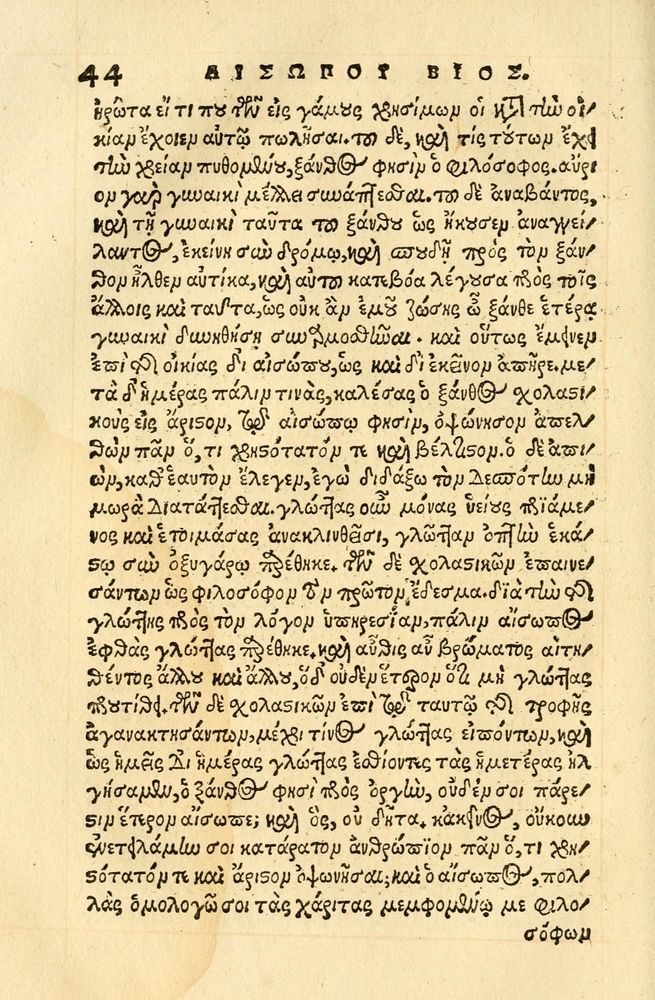 44 ΑΙΣΩΠΟΥ ΒΙΟΣ.
ἠρώτα εἴ τι που τῶν εἰς γάμους χρησίμων οἱ κατὰ τὴν οἰ-
κίαν ἔχοιεν αὐτῷ πωλῆσαι. τοῦ δὲ, καὶ τίς τούτων ἔχει
τὴν χρείαν πυθομένου, ξάνθος φησὶν ὁ φιλόσοφος. αὔρι-
ον γὰρ γυναικὶ μέλλει συνάπτεσθαι. τοῦ δὲ ἀναβάντος,
καὶ τῇ γυναικὶ ταῦτα τοῦ ξάνθου ὡς ἤκουσεν ἀναγγεί-
λαντος, ἐκείνη σὺν δρόμῳ, καὶ σπουδῇ πρὸς τὸν ξάν-
θον ἦλθεν αὐτίκα, καὶ αὐτοῦ κατεβόα λέγουσα πρὸς τοῖς
ἄλλοις καὶ ταῦτα, ὡς οὐκ ἂν ἐμοῦ ζώσης ὦ ξάνθε ἑτέρᾳ
γυναικὶ δυνηθήσῃ συναρμοσθῆναι. καὶ οὕτως ἔμεινεν
ἐπὶ τῆς οἰκίας δι αἰσώπου, ὡς καὶ δι ἐκεῖνον ἀπῆρε. με-
τὰ δ' ἡμέρας πάλιν τινὰς, καλέσας ὁ ξάνθος σχολαστι-
κοὺς εἰς ἄριστον, τῷ αἰσώπῳ φησὶν, ὀψώνησον ἀπελ-
θὼν πᾶν ὅ, τι χρηστότατόν τε καὶ βέλτιστον. ὁ δὲ ἀπι-
ὼν, καθ' ἑαυτὸν ἔλεγεν, ἐγὼ διδάξω τὸν δεσπότην μὴ
μωρὰ διατάττεσθαι. γλώττας οὖν μόνας ὑείους πριάμε-
νος καὶ ἑτοιμάσας ἀνακλινθεῖσι, γλῶτταν ὀπτὴν ἑκά-
στῳ σὺν ὀξυγάρῳ παρέθηκε. τῶν δὲ σχολαστικῶν ἐπαινε-
σάντων ὡς φιλοσόφου τὸ πρῶτον ἔδεσμα. διὰ τὴν τῆς
γλώττης πρὸς τὸν λόγον ὑπηρεσίαν, πάλιν αἴσωπος
ἐφθὰς γλώττας παρέθηκε. καὶ αὖθις αὖ βρώματος αἰτη-
θέντος ἄλλου καὶ ἄλλου, ὅδ' οὐδὲν ἕτερον ὅτι μὴ γλώττας
προὐτίθει. τῶν δὲ σχολαστικῶν ἐπὶ τῷ ταυτῷ τῆς τροφῆς
ἀγανακτησάντων, μέχρι τίνος γλώττας εἰπόντων, καὶ
ὡς ἡμεῖς δι ἡμέρας γλώττας ἐσθίοντες τὰς ἡμετέρας ἠλ
γήσαμεν, ὁ ξάνθος φησὶ πρὸς ὀργὴν, οὐδέν σοι πάρε-
στιν ἕτερον αἴσωπε; καὶ ὃς, οὐ δῆτα. κἀκεῖνος, οὔκουν
ἐνετειλάμην σοι κατάρατον ἀνθρώπιον πᾶν ὅ, τι χρη-
στότατόν τε καὶ ἄριστον ὀψωνῆσαι; καὶ ὁ αἴσωπος, πολ-
λὰς ὁμολογῶ σοι τὰς χάριτας μεμφομένῳ με φιλο-
σόφων